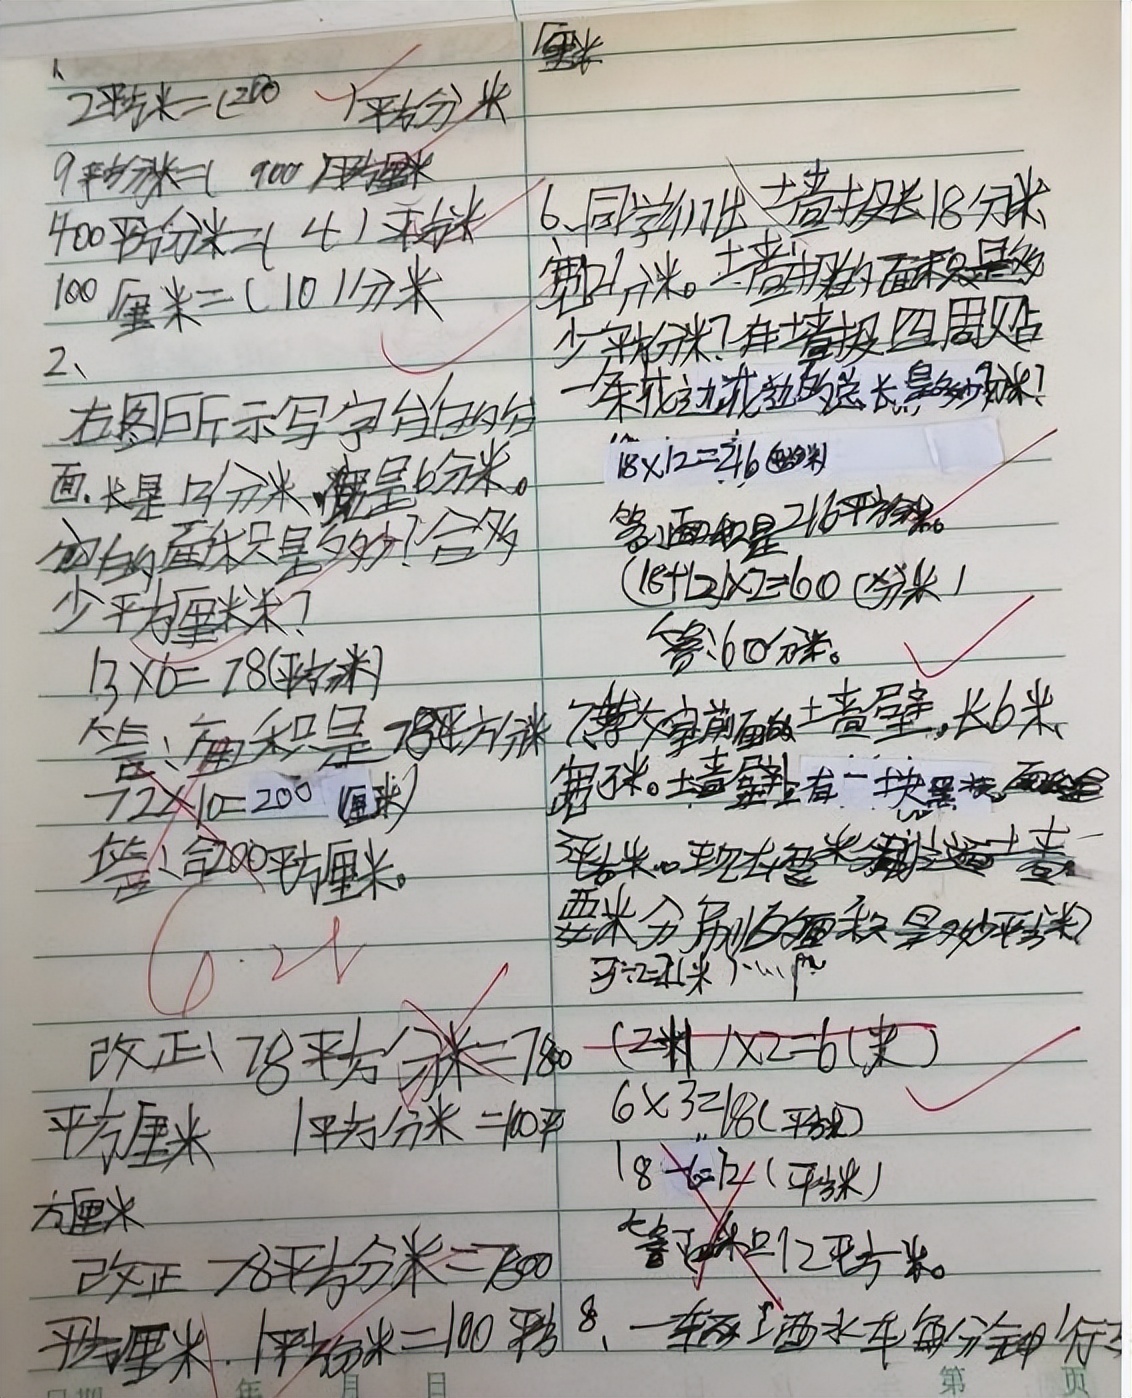 1、
2平方米=(200)平方分米
9平方分米=(900)平方厘米
400平方分米=(4)平方米
100厘米=(10)分米
2、
右图所示写字台的台
面,长是13分米,宽是6分米。
面积是多少?合多
少平方厘米?
13×6=78(平方分米)
答:面积是78平方分米
72×10=200(厘米)
答:合200平方厘米。
改正:78平方分米=7800
平方厘米 1平方分米=100平
方厘米
改正 78平方分米=7800
平方厘米.1平方分米=100平方
厘米
6、同学们出墙报长18分米
宽12分米。墙报的面积是多
少平方分米?在墙报四周贴
一条花边花边的总长是多少分米?
18×12=216
答:面积是216平方分米。
(18+12)×2=60(分米)
答:60分米。
7、教室前面的墙壁,长6米,
宽3米。墙壁上有一块黑板,面积是
平方米。现在
要 分别的面积是多少平方米?
×2=6(米)
6×3=18(平方米)
18-6=12(平方米)
答:面积是12平方米。
8、一辆洒水车每分钟行
年 月 日
第 页